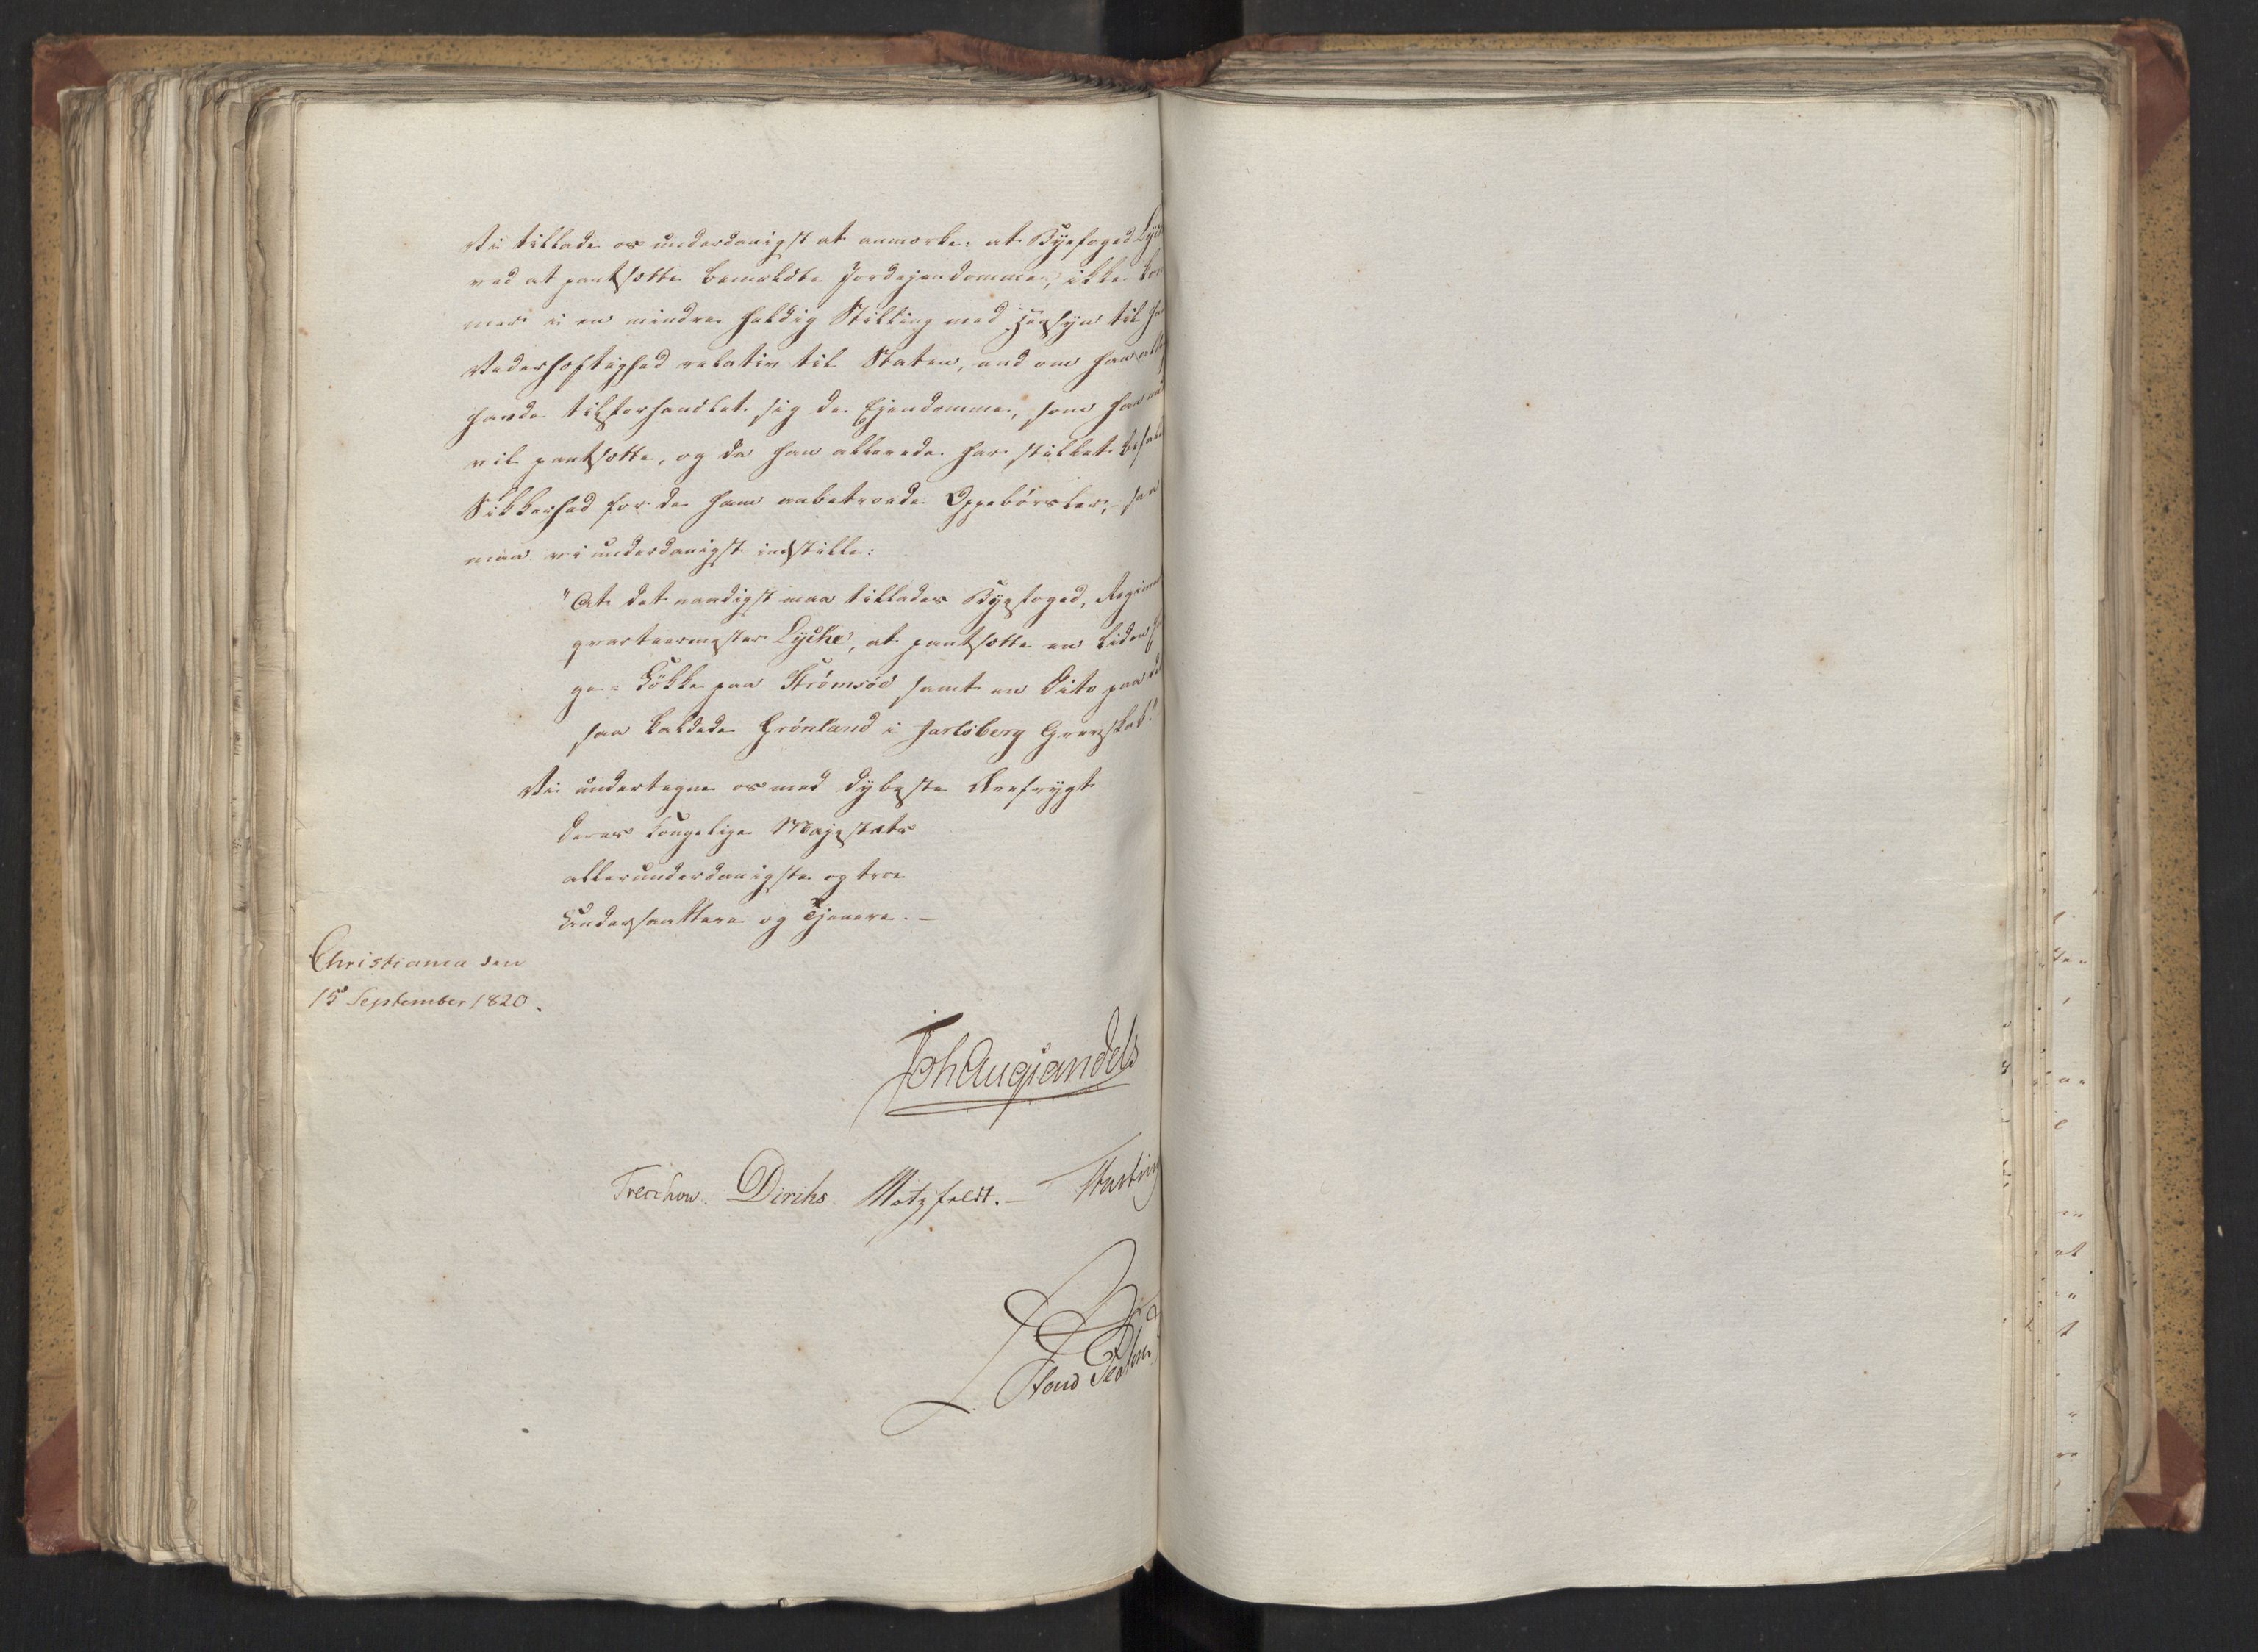 Vi tillade os underdanigst at anmærke: at Byefoged Lyck
ved at pantsætte bemældte Jordejendommer, ikke kom
mer i en mindre heldig Stilling med Hensyn til
Vederhæftighed relativ til Staten, end om han
havde tilforhandlet sig de Ejendomme, som han
vil pantsætte, og da han allerede har stillet
Sikkerhed for de ham anbetroede Oppebørsler, saa
maa vi underdanigst indstille:
"At det naadigst maa tillades Byefoged, Regime
qvarteermester Lycke, at pantsætte en liden
ge= Løkke paa Strømsøe samt en Dito paa
saa kaldede Grønland i Jarlsberg Grevskab."
Vi undertegne os med dybeste Ærefrygt
Deres Kongelige Majestæts
allerunderdanigste og troe
Undersaattere og Tjenere. –
Christiania den
15 September 1820.
Joh Aug Sandels
Treschow. Diriks Motzfeldt. – Fasting